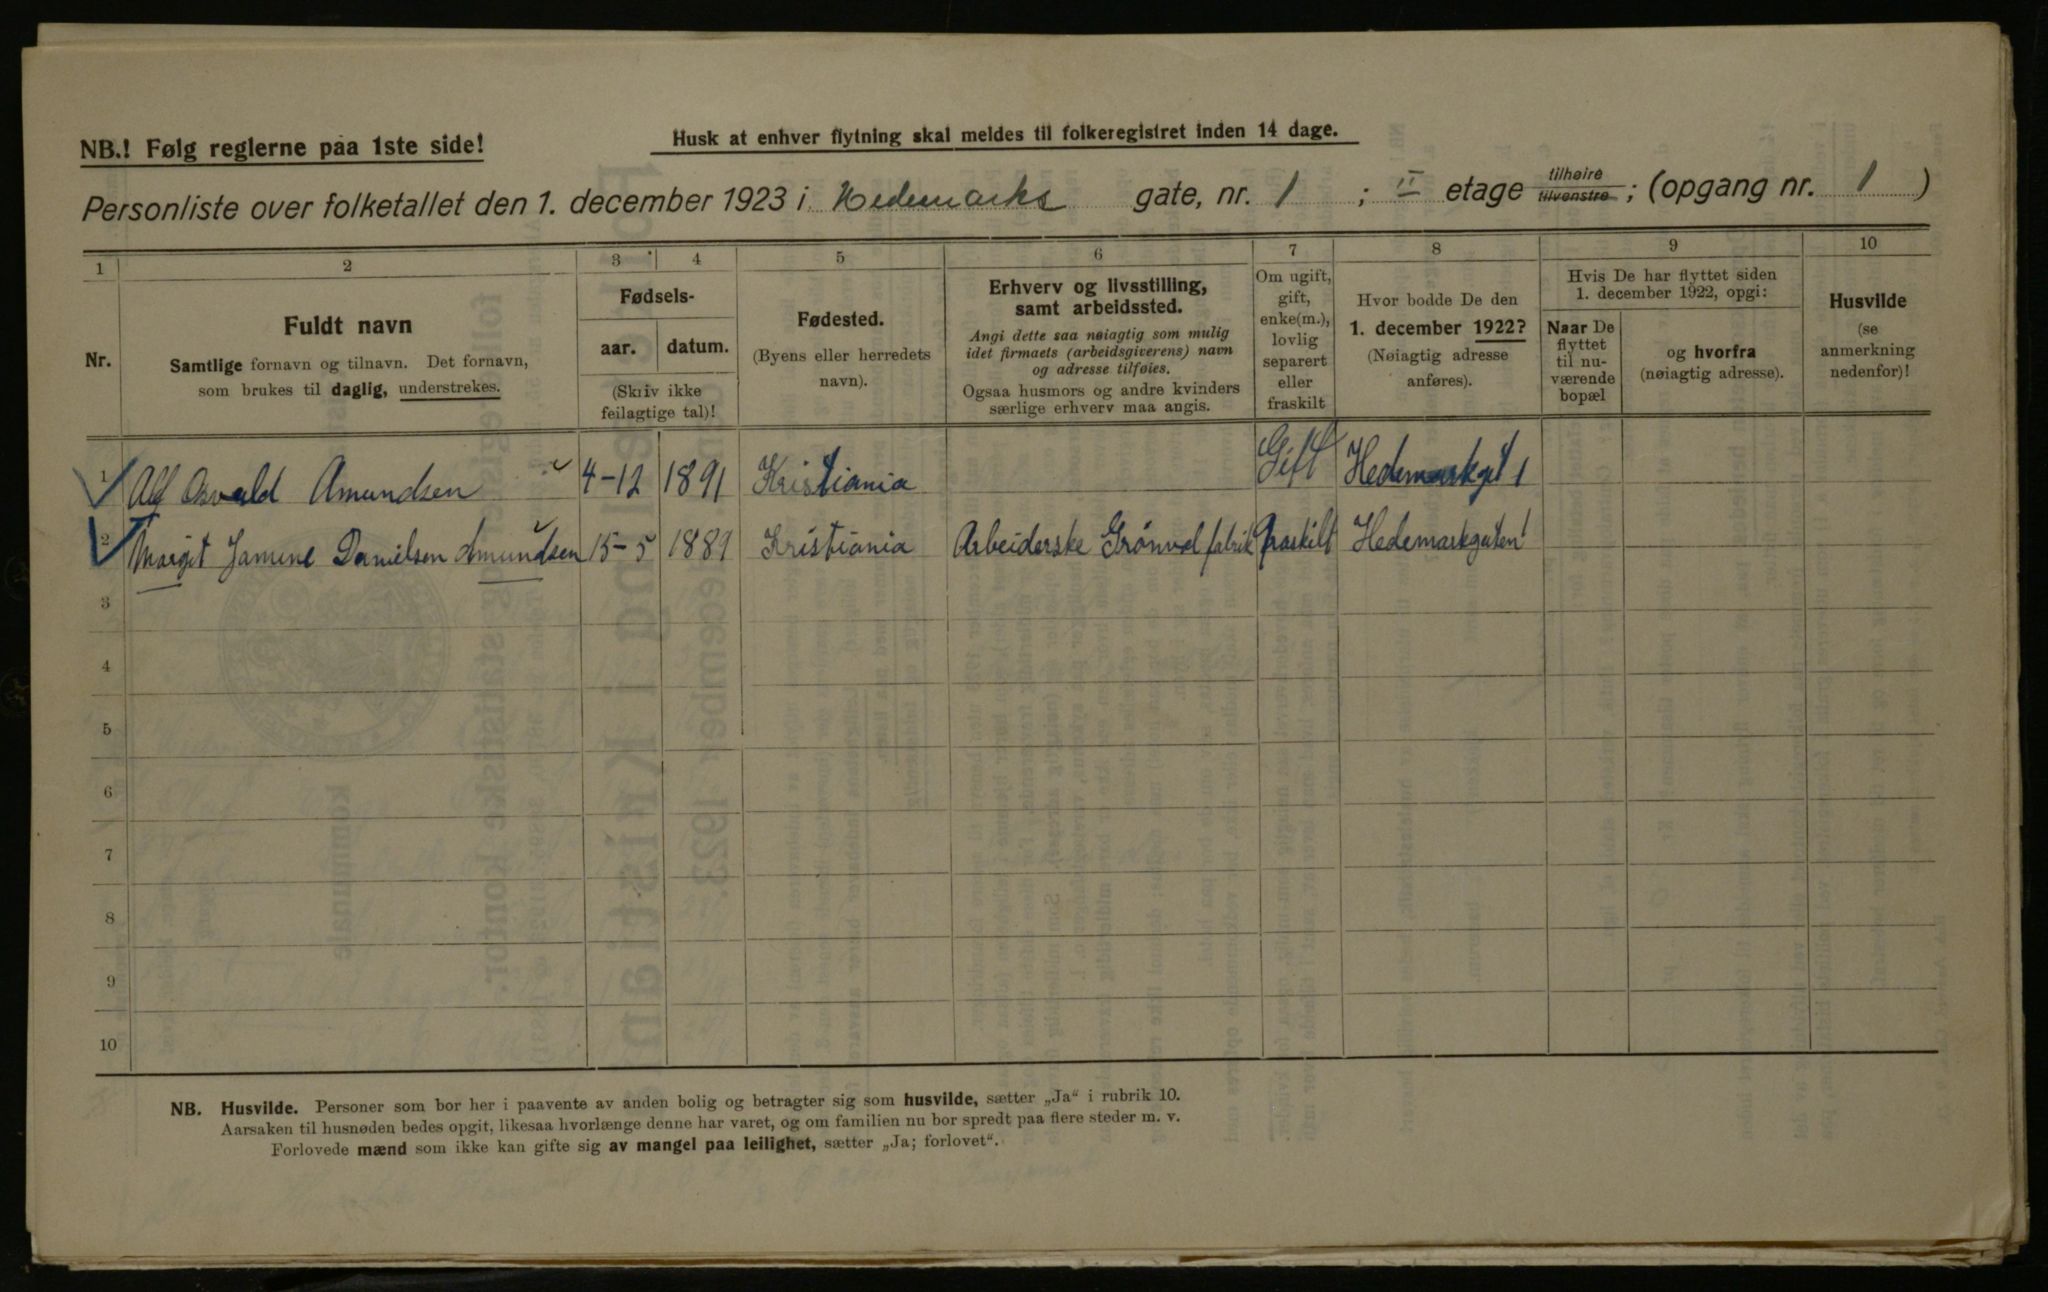 NB.! Følg reglerne paa 1ste side!
Husk at enhver flytning skal meldes til folkeregistret inden 14 dage.
Personliste over folketallet den 1. december 1923 i Hedemarks gate, nr. 1 ; II etage tilhøire tilvenstre ; (opgang nr. 1 )
1 2 3 4 5 6 7 8 9 10
Nr.
Fuldt navn
Samtlige fornavn og tilnavn. Det fornavn,
som brukes til daglig, understrekes.
Fødsels-
aar. datum.
(Skriv ikke
feilagtige tal)!
Fødested.
(Byens eller herredets
navn).
Erhverv og livsstilling,
samt arbeidssted.
Angi dette saa nøiagtig som mulig
idet firmaets (arbeidsgiverens) navn
og adresse tilføies.
Ogsaa husmors og andre kvinders
særlige erhverv maa angis.
Om ugift,
gift,
enke(m.),
lovlig
separert
eller
fraskilt
Hvor bodde De den
1. december 1922?
(Nøiagtig adresse
anføres).
Hvis De har flyttet siden
1. december 1922, opgi:
Naar De
flyttet
til nu-
værende
bopæl
og hvorfra
(nøiagtig adresse).
Husvilde
(se
anmerkning
nedenfor)!
1 Alf Osvald Amundsen 4-12 1891 Kristiania Gift Hedemarkgt 1
2 Margit Jamine Danielsen Amundsen 15-5 1889 Kristiania Arbeiderske Grønvol fabrik fraskilt Hedemarkgaten 1
3
4
5
6
7
8
9
10
NB. Husvilde. Personer som bor her i paavente av anden bolig og betragter sig som husvilde, sætter „Ja“ i rubrik 10.
Aarsaken til husnøden bedes opgit, likesaa hvorlænge denne har varet, og om familien nu bor spredt paa flere steder m. v.
Forlovede mænd som ikke kan gifte sig av mangel paa leilighet, sætter „Ja; forlovet“.